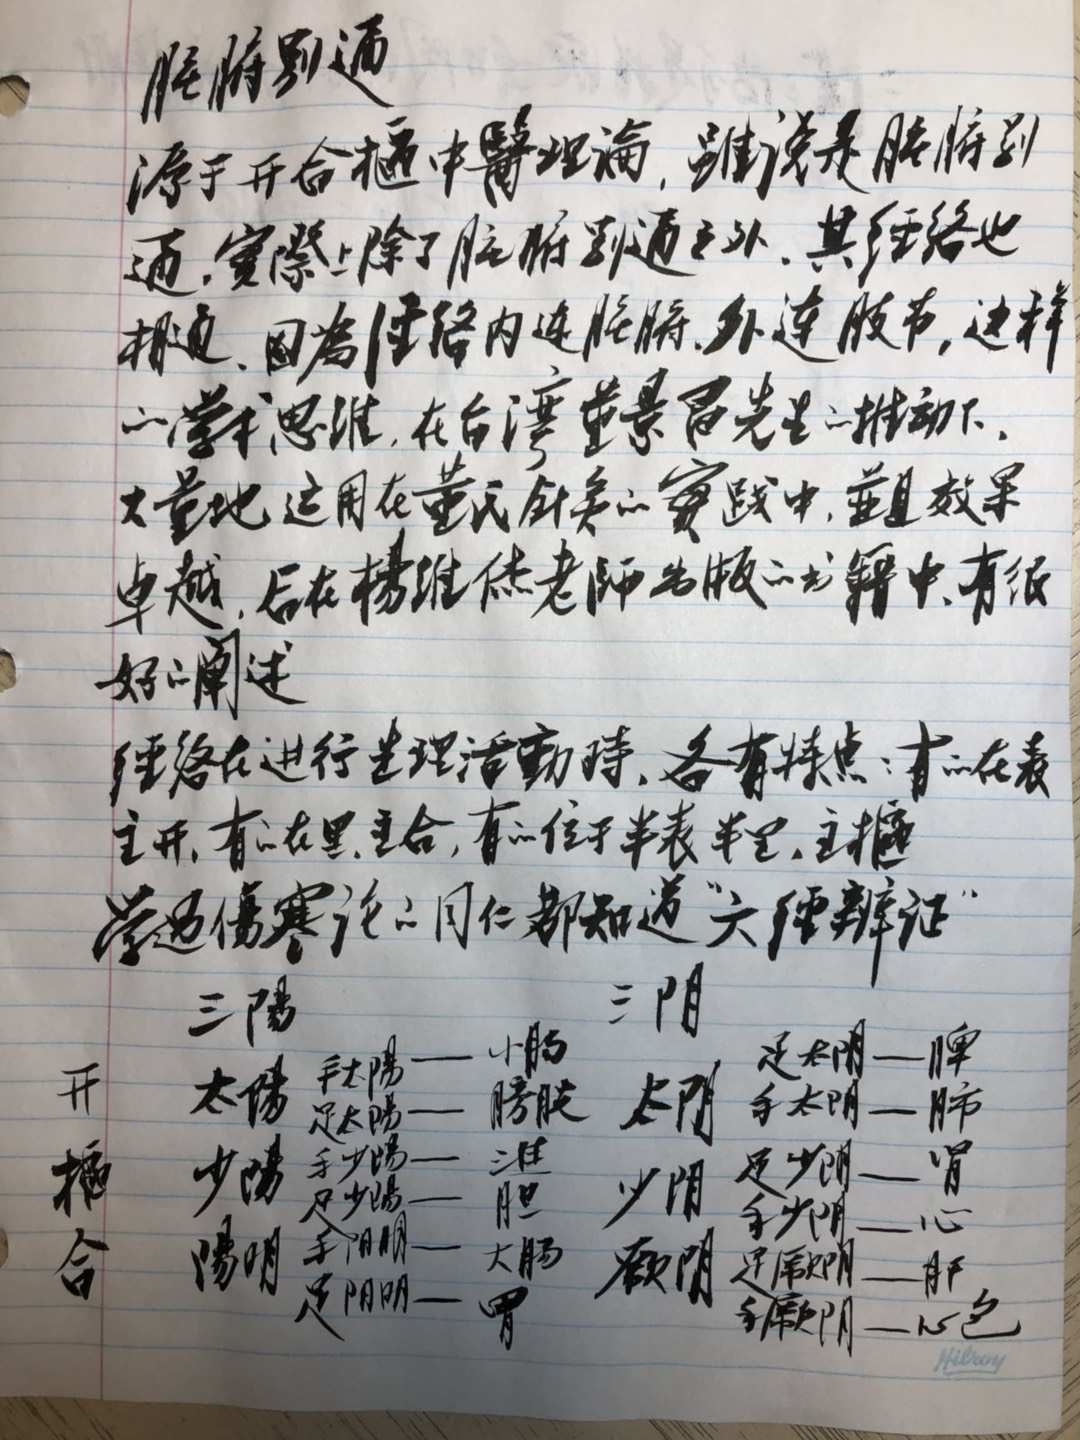 脏腑别通
源于开合樞中醫理論，雖说是脏腑别
通，實際上除了脏腑别通之外、其经络也
相通、因為经络内连脏腑、外连肢节，这样
的學术思维，在台湾董景昌先生的推动下、
大量地运用在董氏针灸的實践中，並且效果
卓越，后在楊维傑老師出版的书籍中、有很
好的阐述
经络在进行生理活動時、各有特点：有的在表
主开、有的在里、主合，有的位于半表半里、主樞
学过傷寒论的同仁都知道“六经辨证”
三陽 三阴
开 太陽 手太陽 — 小肠 太阴 足太阴 — 脾
足太陽 — 膀胱 手太阴 — 肺
樞 少陽 手少陽 — 三焦 少阴 足少阴 — 肾
足少陽 — 胆 手少阴 — 心
合 陽明 手阴明 — 大肠 厥阴 足厥阴 — 肝
足阴明 — 胃 手厥阴 — 心包
Hilroy